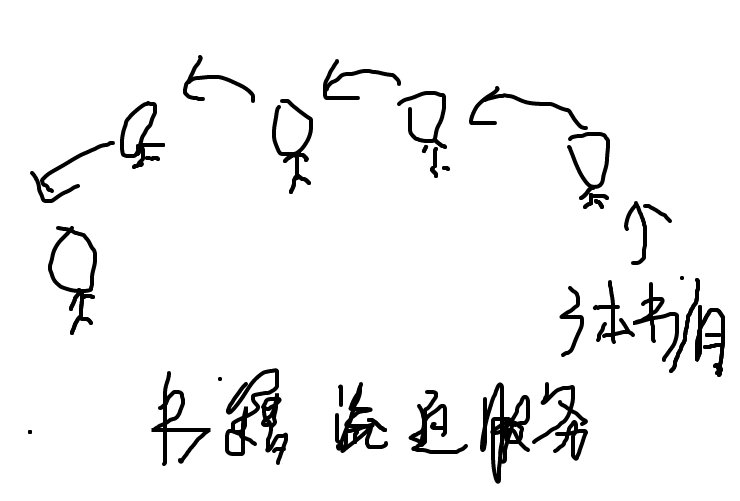 3本书/月
书籍流通服务